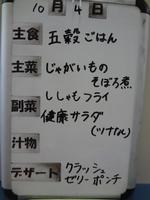 10月4日
主食 五穀ごはん
主菜 じゃがいもの
そぼろ煮
副菜 ししゃもフライ
健康サラダ
(ツナ入り)
汁物
デザート クラッシュ
ゼリーポンチ